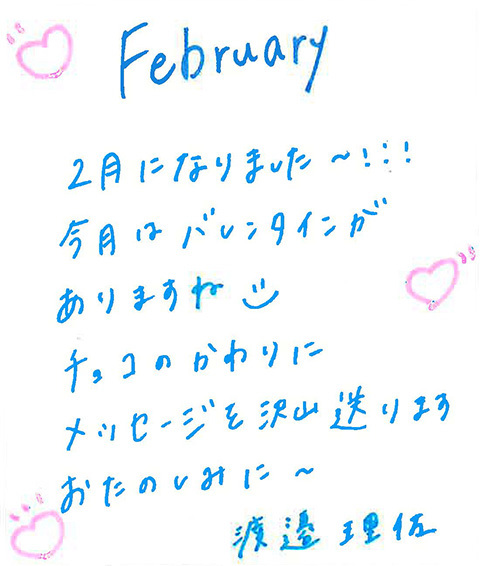 February
2月になりました〜!!!
今月はバレンタインが
ありますね
チョコのかわりに
メッセージを沢山送ります
おたのしみに〜
渡邉理佐